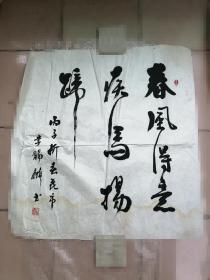 春風得意
疾馬揚
蹄
丙子新春
書